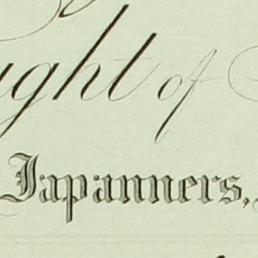 ight of
Japanners,